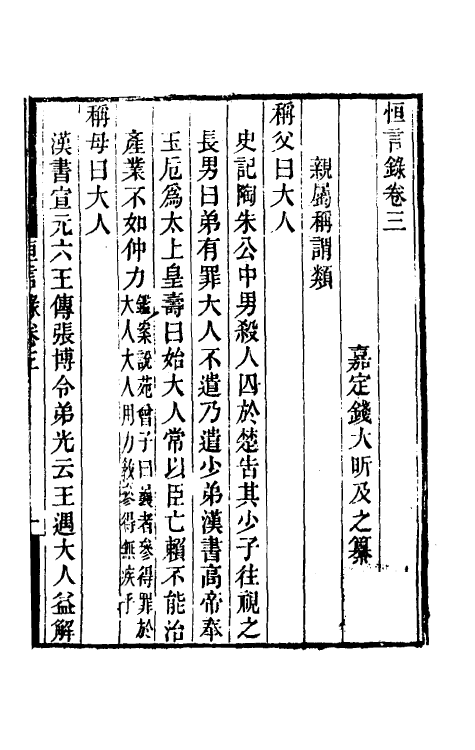 恒言錄卷三
嘉定錢大昕及之纂
親屬稱謂類
稱父曰大人
史記陶朱公中男殺人囚於楚告其少子往視之
長男曰弟有罪大人不遣乃遣少弟漢書高帝奉
玉卮爲太上皇壽曰始大人常以臣亡賴不能治
產業不如仲力
鑑案說苑曾子曰曩者參得罪於
大人大人用力教參得無疾乎
稱母曰大人
漢書宣元六王傳張博令弟光云王遇大人益解
恒言錄卷三
一